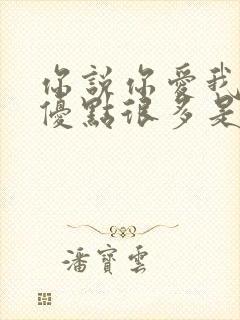 你說你愛我
優點很多是
潘寶雲